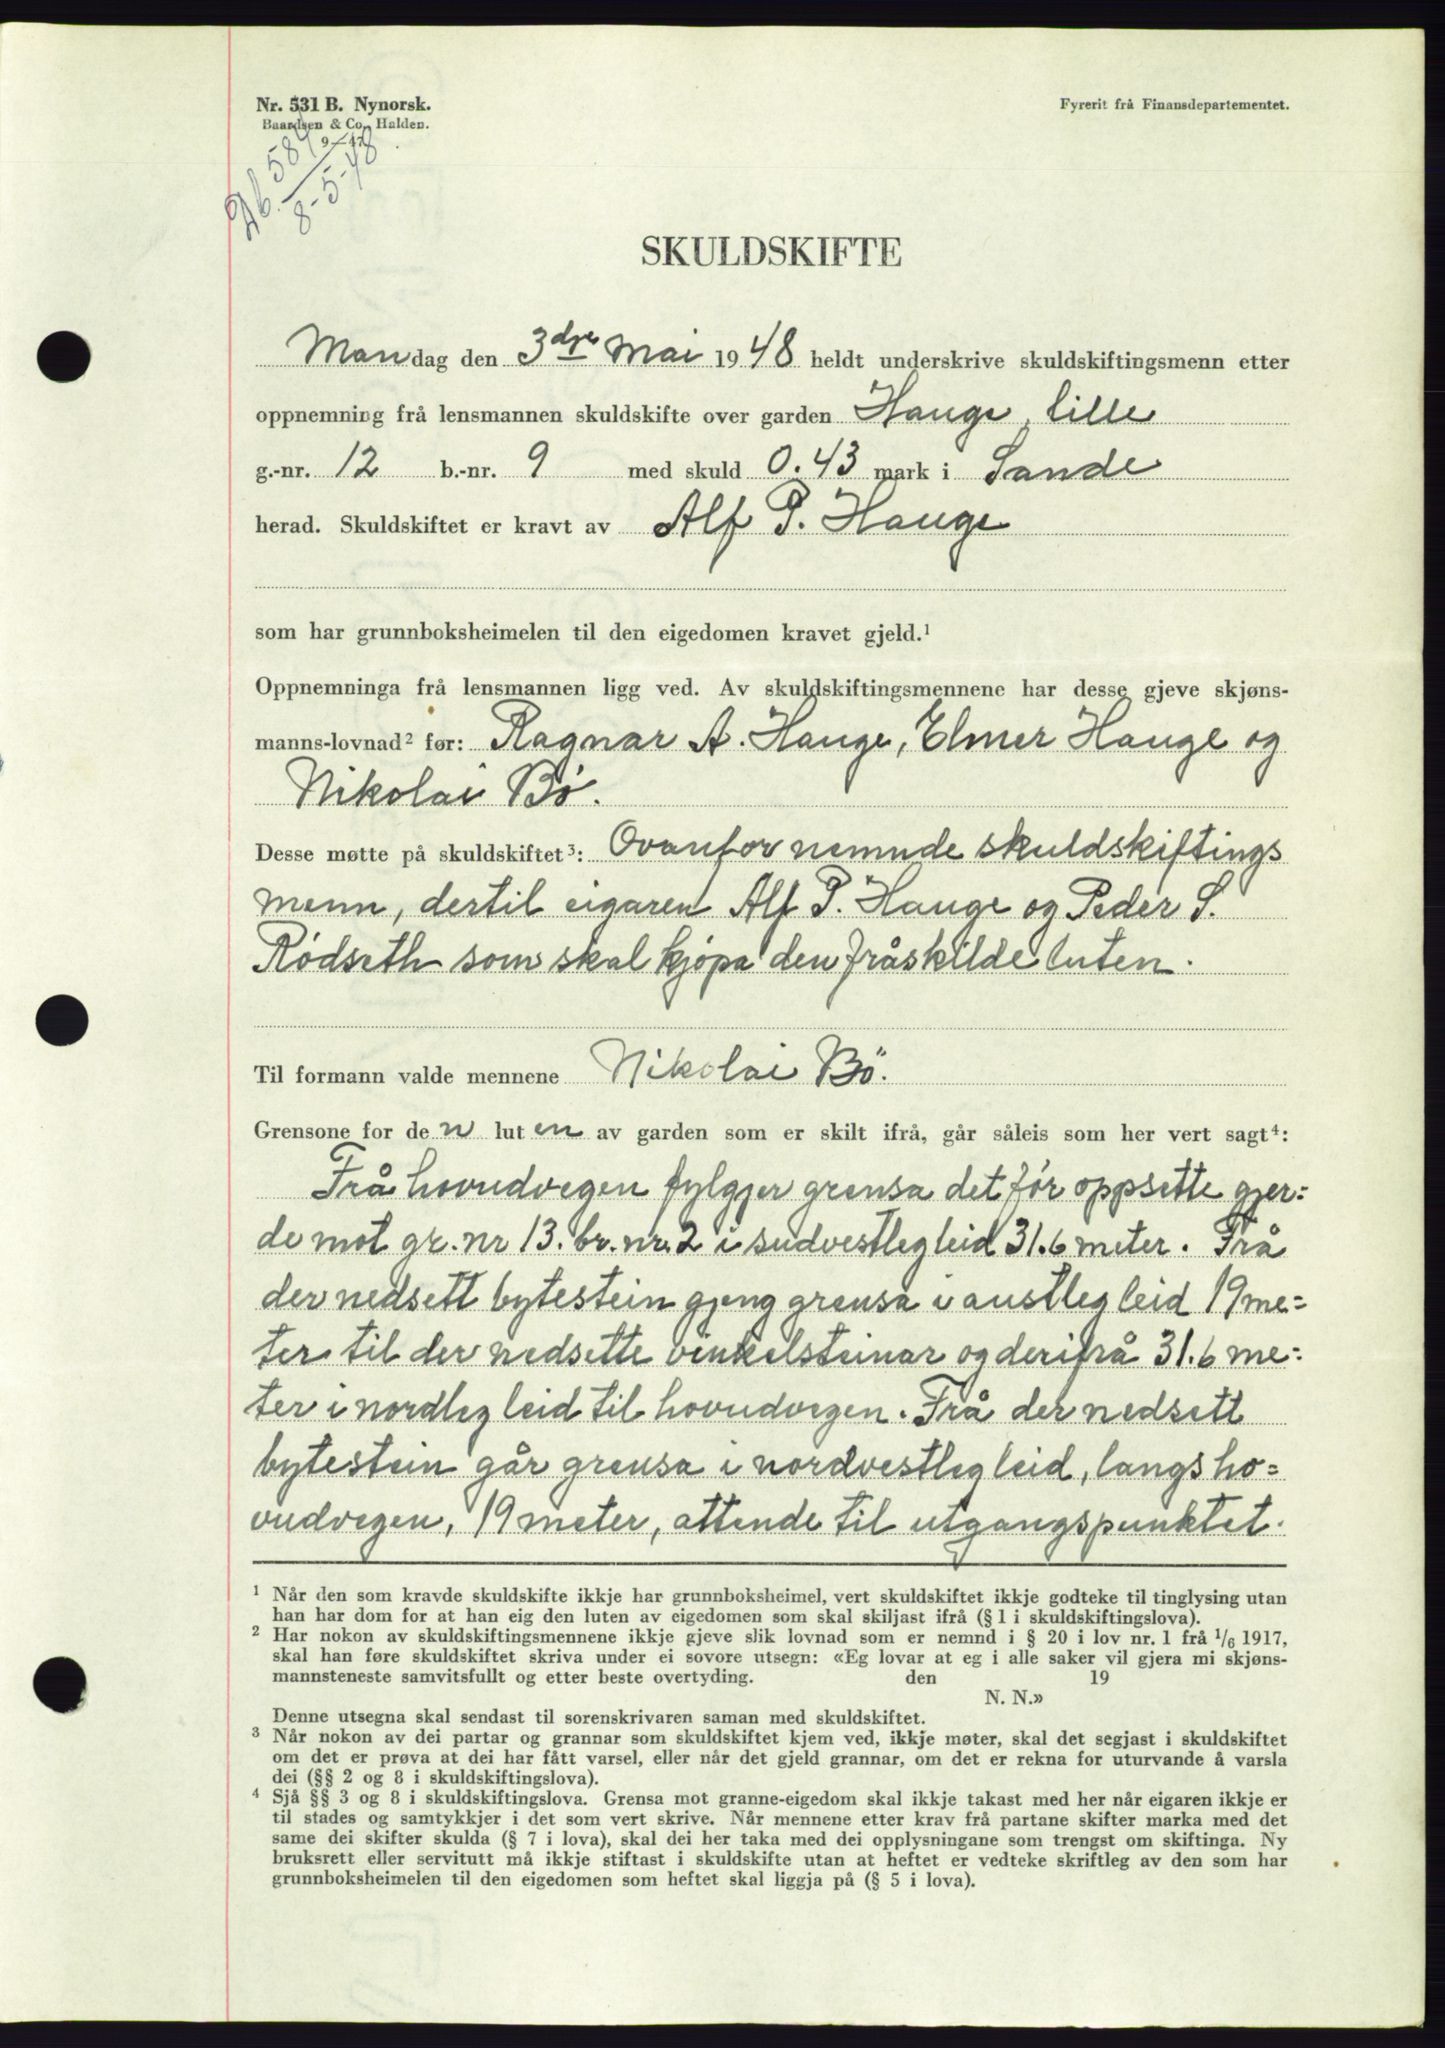 Nr. 531 B. Nynorsk.
Baardsen & Co, Halden.
9—47
584
8-5-48
Fyrerit frå Finansdepartementet.
SKULDSKIFTE
Mandag den 3dre mai 1948 heldt underskrive skuldskiftingsmenn etter
oppnemning frå lensmannen skuldskifte over garden Hauge, lille
g.-nr. 12 b.-nr. 9 med skuld 0.43 mark i Sande
herad. Skuldskiftet er kravt av Alf P. Hauge
som har grunnboksheimelen til den eigedomen kravet gjeld.¹
Oppnemninga frå lensmannen ligg ved. Av skuldskiftingsmennene har desse gjeve skjøns-
manns-lovnad² før: Ragnar A. Hauge, Elmer Hauge og
Nikolai Bö.
Desse møtte på skuldskiftet³: Ovanfor nemnde skuldskiftings
menn, dertil eigaren Alf P. Hauge og Peder S.
Rödseth som skal kjöpa den fråskilde luten.
Til formann valde mennene Nikolai Bö.
Grensone for den luten av garden som er skilt ifrå, går såleis som her vert sagt⁴:
Frå hovudvegen fylgjer grensa det för oppsette gjer=
de mot gr. nr 13. br. nr. 2 i sudvestleg leid 31.6 meter. Frå
der nedsett bytestein gjeng grensa i austleg leid 19 me=
ter til der nedsette vinkelsteinar og derifrå 31.6 me=
ter i nordleg leid til hovudvegen. Frå der nedsett
bytestein går grensa i nordvestleg leid, langs ho=
vudvegen, 19 meter, attende til utgangspunktet.
¹ Når den som kravde skuldskifte ikkje har grunnboksheimel, vert skuldskiftet ikkje godteke til tinglysing utan
han har dom for at han eig den luten av eigedomen som skal skiljast ifrå (§ 1 i skuldskiftingslova).
² Har nokon av skuldskiftingsmennene ikkje gjeve slik lovnad som er nemnd i § 20 i lov nr. 1 frå 1/6 1917,
skal han føre skuldskiftet skriva under ei sovore utsegn: «Eg lovar at eg i alle saker vil gjera mi skjøns-
mannsteneste samvitsfullt og etter beste overtyding. den 19
N. N.»
Denne utsegna skal sendast til sorenskrivaren saman med skuldskiftet.
³ Når nokon av dei partar og grannar som skuldskiftet kjem ved, ikkje møter, skal det segjast i skuldskiftet
om det er prøva at dei har fått varsel, eller når det gjeld grannar, om det er rekna for uturvande å varsla
dei (§§ 2 og 8 i skuldskiftingslova).
⁴ Sjå §§ 3 og 8 i skuldskiftingslova. Grensa mot granne-eigedom skal ikkje takast med her når eigaren ikkje er
til stades og samtykkjer i det som vert skrive. Når mennene etter krav frå partane skifter marka med det
same dei skifter skulda (§ 7 i lova), skal dei her taka med dei opplysningane som trengst om skiftinga. Ny
bruksrett eller servitutt må ikkje stiftast i skuldskifte utan at heftet er vedteke skriftleg av den som har
grunnboksheimelen til den eigedomen som heftet skal liggja på (§ 5 i lova).